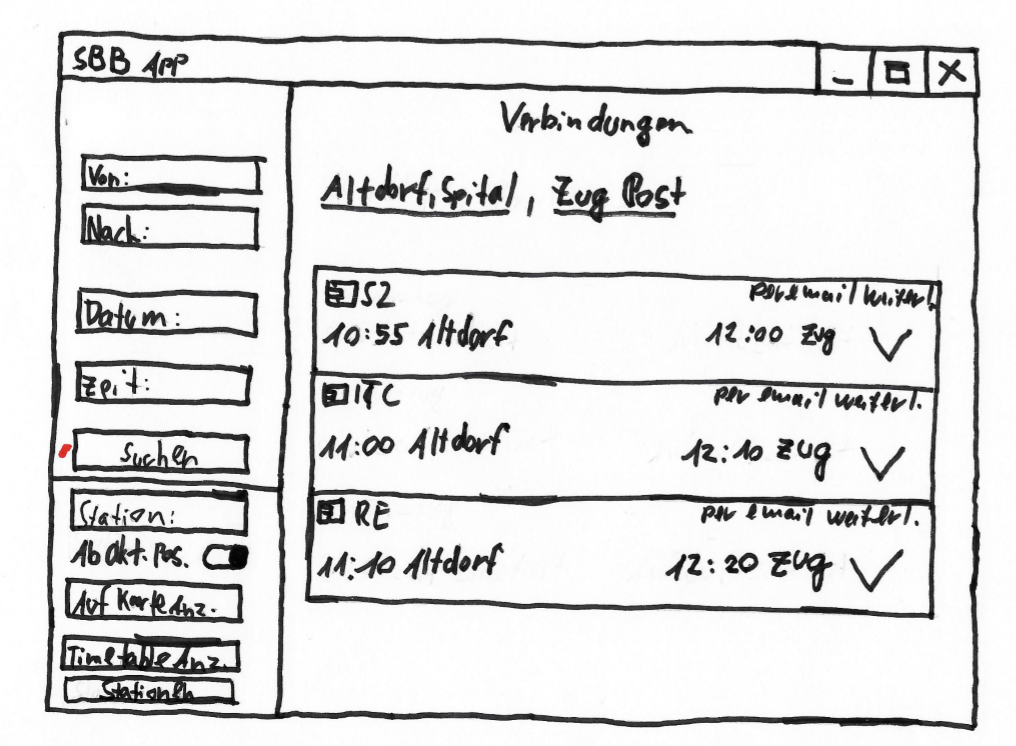 SBB App
Von:
Nach:
Datum:
Zeit:
Suchen
Station:
Ab Akt. Pos.
Auf Karte Anz.
Timetable Anz.
Stationen
Verbindungen
Altdorf, Spital, Zug Post
S2
per email weiterl.
10:55 Altdorf 12:00 Zug
per email weiterl.
11:00 Altdorf 12:10 Zug
RE
per email weiterl.
11:10 Altdorf 12:20 Zug